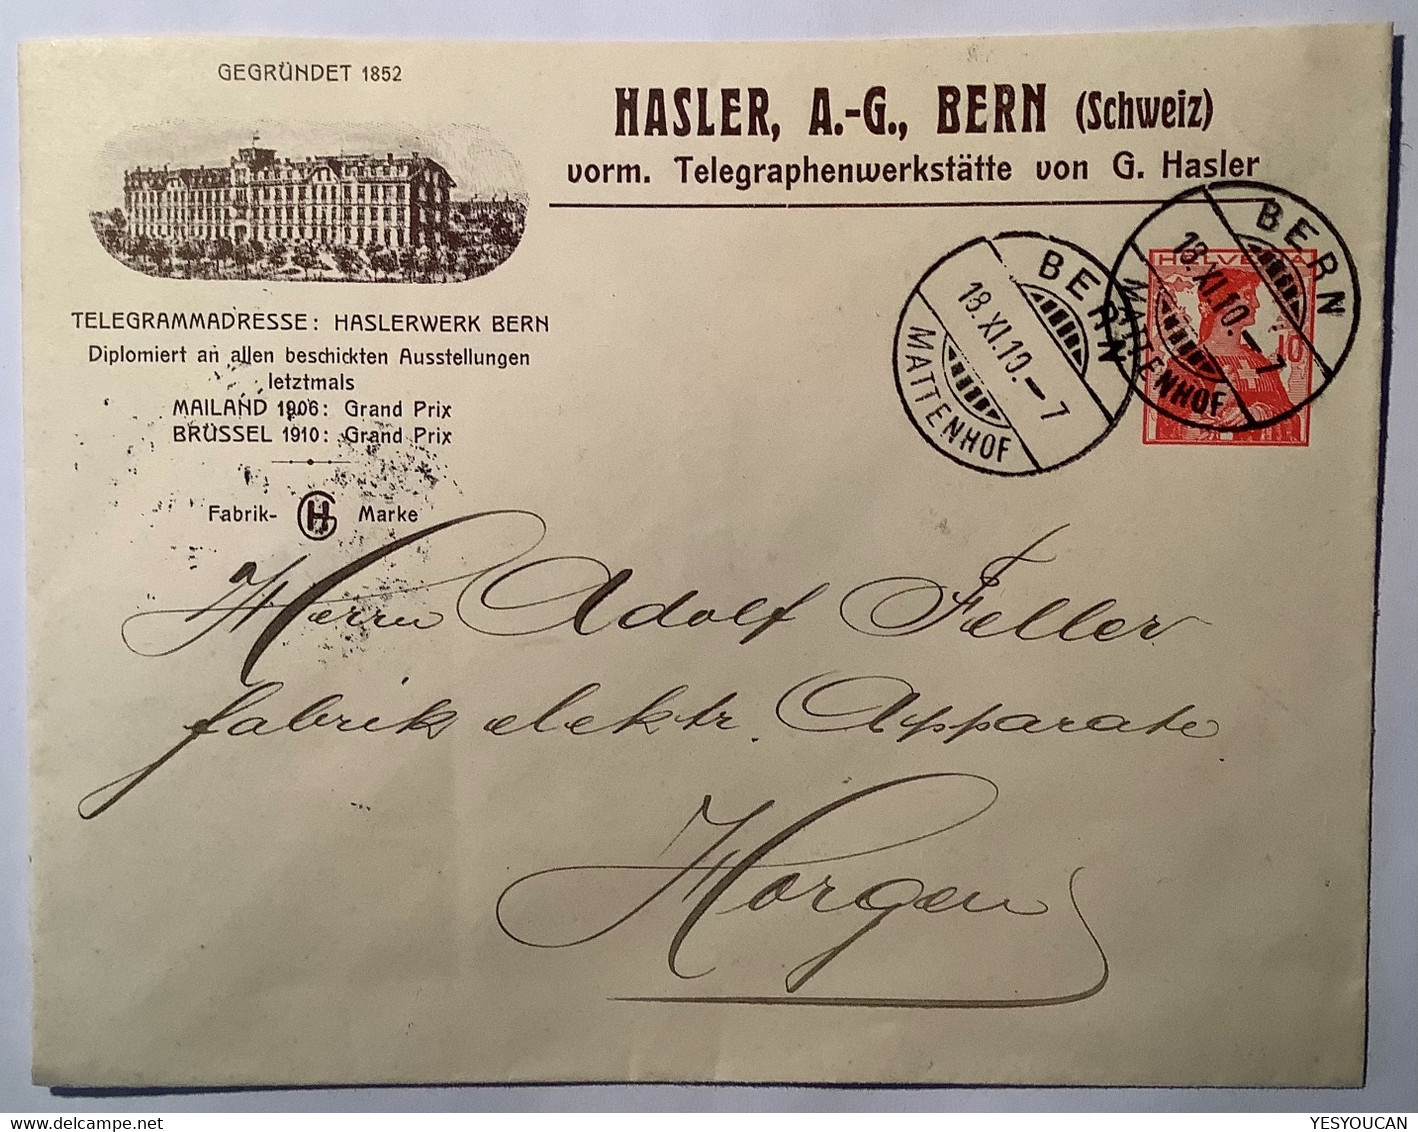 GEGRÜNDET 1852
HASLER, A.-G., BERN (Schweiz)
vorm. Telegraphenwerkstätte von G. Hasler
BERN
18.XI.10.–7
MATTENHOF
BERN
18.XI.10.–7
MATTENHOF
HELVETIA
10
TELEGRAMMADRESSE: HASLERWERK BERN
Diplomiert an allen beschickten Ausstellungen
letztmals
MAILAND 1906: Grand Prix
BRÜSSEL 1910: Grand Prix
Fabrik- GH Marke
Herrn Adolf Feller
fabrik elektr. Apparate
Horgen
YESYOUCAN